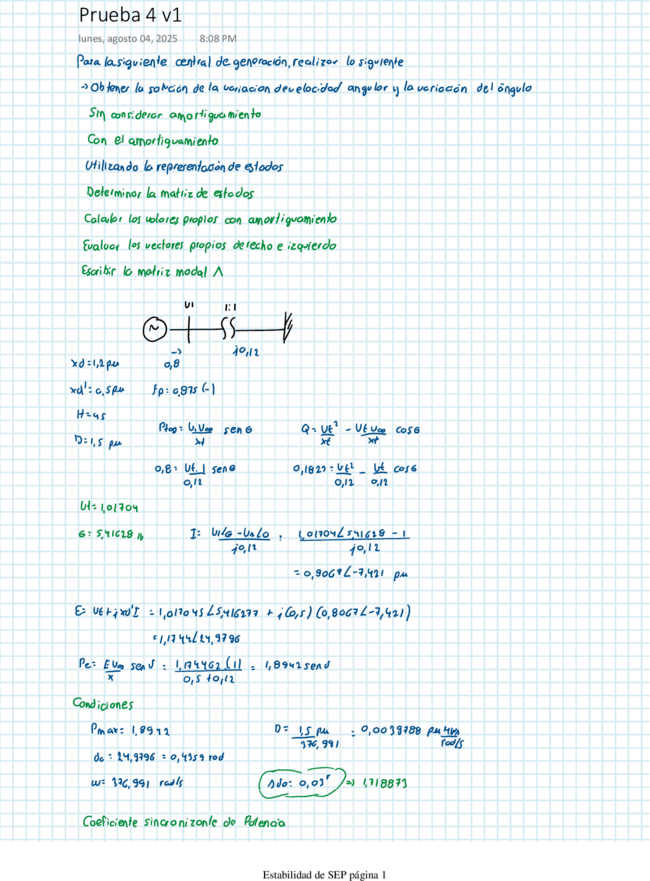 Prueba 4 v1
lunes, agosto 04, 2025 8:08 PM
Para la siguiente central de generación, realizar lo siguiente
→ Obtener la solución de la variacion de velocidad angular y la variación del ángulo
Sin considerar amortiguamiento
Con el amortiguamiento
Utilizando la representación de estados
Determinar la matriz de estados
Calcular los valores propios con amortiguamiento
Evaluar los vectores propios derecho e izquierdo
Escribir la matriz modal Λ
U1 1:1
~
→ j0,12
xd=1,2 pu 0,8
xd'=0,5pu fp=0,875 (-)
H=4s
D=1,5 pu
Ptop= U1U∞/xt senθ Q= Ut²/xt - UtU∞/xt cosθ
0,8= Ut.1/0,12 senθ 0,1827= Ut²/0,12 - Ut/0,12 cosθ
Ut=1,01704
θ=5,41628
I= U1∠θ-U∞∠0/j0,12 = 1,01704∠5,41628-1/j0,12
=0,8067∠-7,421 pu
E= Ut+jxd'I = 1,017045∠5,416277 + j(0,5)(0,8067∠-7,421)
=1,1744∠24,9796
Pe= EU∞/x senδ = 1,174462(1)/0,5+0,12 = 1,8942senδ
Condiciones
Pmax=1,8942 D= 1,5 pu/376,991 = 0,0039788 pu rad/s
do=24,9796=0,4359 rod
w= 376,991 rad/s Δdo=0,03ʳ ⇒ 1,718873
Coeficiente sincronizante de Potencia
Estabilidad de SEP página 1